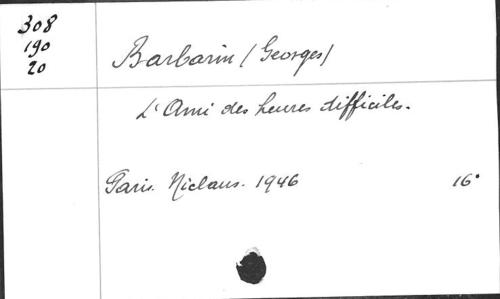 308
190
20
Barbarin (Georges)
L'Ami des heures difficiles.
Paris. Niclaus. 1946 16°